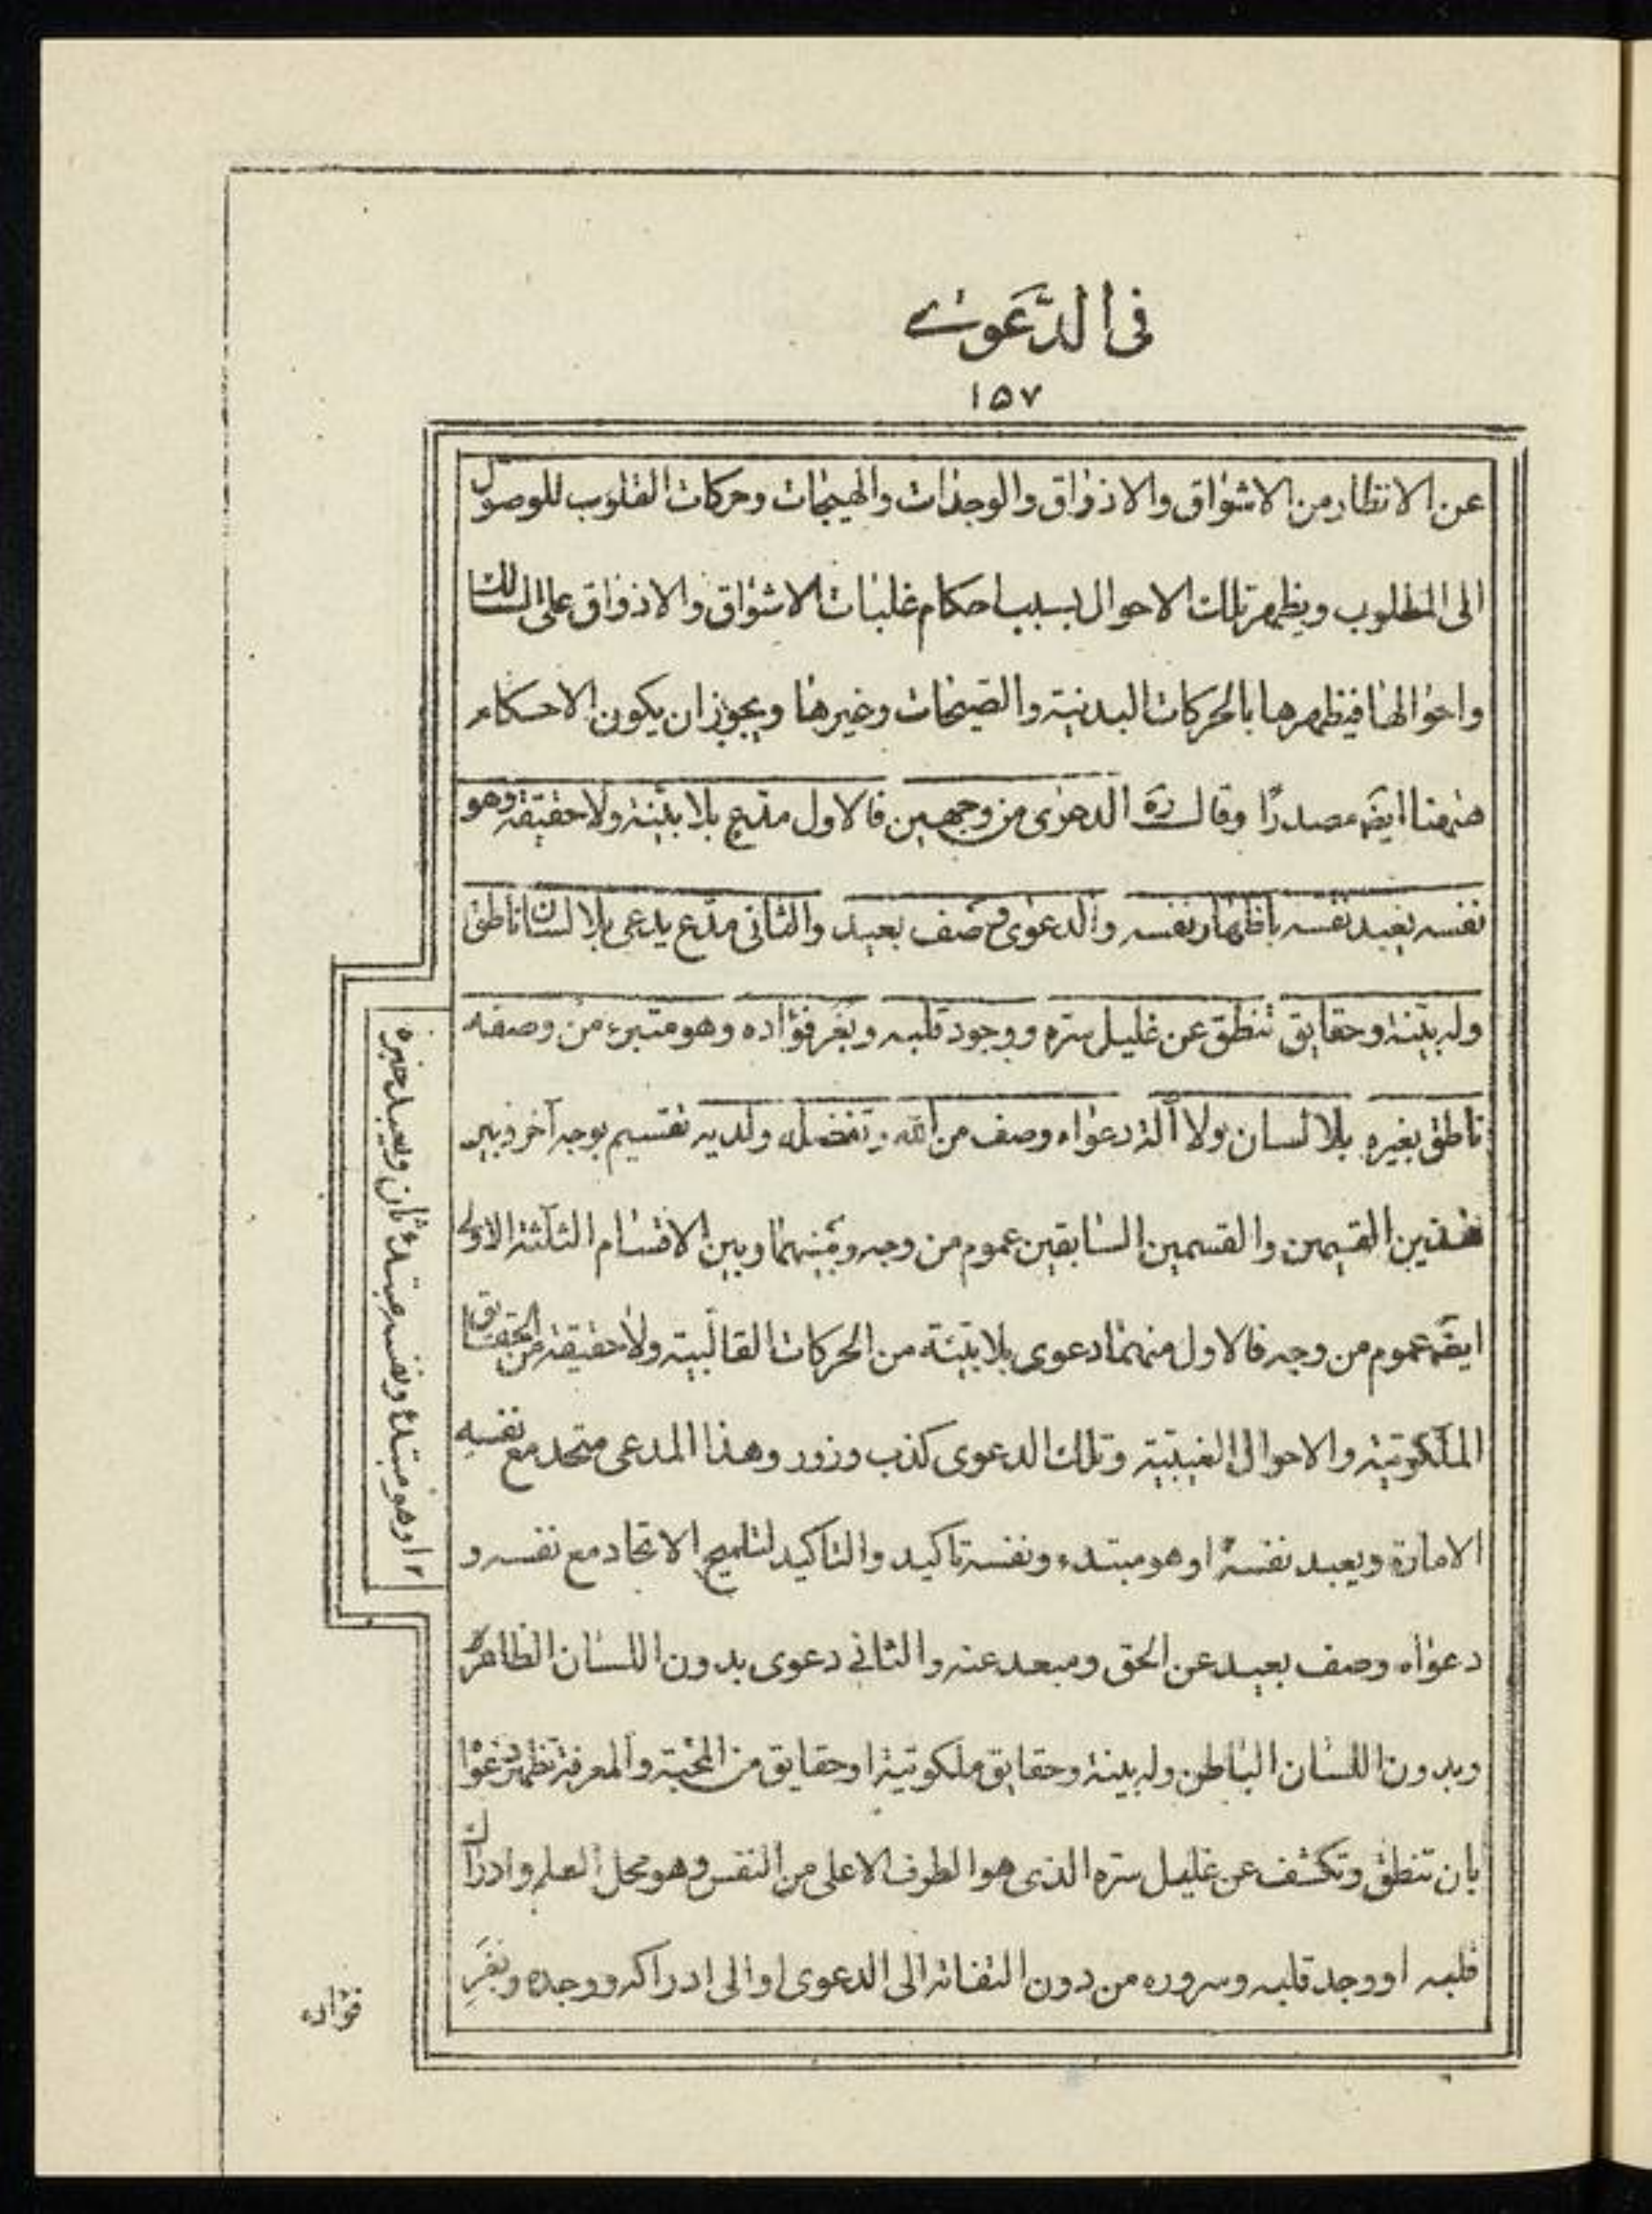 فى الدَّعوىٰ
١٥٧
عن الانتظار من الاشواق والاذواق والوجدات والهيجات وحركات القلوب للوصول
الى المطلوب ويظهر تلك الاحوال بسبب احكام غلبات الاشواق والاذواق على السالك
واحوالها فيظهرها بالحركات البدنية والصيحات وغيرها ويجوز ان يكون الاحكام
ههنا ايضَه مصدرًا وقال ره الدعوى من وجهين فالاول مدّع بلا بيّنة ولا حقيقة وهو
نفسه يعبد نفسه باظهار نفسه والدعوى ح صف بعيد والثانى مدّع يدعى بلا لسان ناطق
وله بيّنة وحقايق تنطق عن غليل سرّه ووجود قلبه وبغَر فؤاده وهو متبرء من وصفه
ناطق بغيره بلا لسان ولا آلة دعواه وصف من الله وتفضل ولديه تقسيم بوجه آخر وبين
هذين القسيمين والقسمين السابقين عموم من وجه وبينهما وبين الاقسام الثلثة الاولى
ايضَه عموم من وجه فالاول منهما دعوى بلا بيّنة من الحركات القالبية ولا حقيقة من الحقايق
الملكوتية والاحوال الغيبيّة وتلك الدعوى كذب وزور وهذا المدعى متحد مع نفسه
الامارة ويعبد نفسه او هو مبتدء ونفسه تاكيد والتاكيد لتلميح الاتحاد مع نفسه و
دعواه وصف بعيد عن الحق ومبعد عنه والثانى دعوى بدون اللسان الظاهر
وبدون اللسان الباطن وله بينة وحقايق ملكوتية او حقايق من المحبّة والمعرفة تظهر دعواه
بان تنطق وتكشف عن غليل سرّه الذى هو الطرف الاعلى من النفس وهو محل العلم وادراك
قلبه او وجد قلبه وسروره من دون التفاته الى الدعوى او الى ادراكه ووجده وبغَر
او هو مبتدأ ونفسه مبتدأ ثان ويعبد خبره ١٢
فؤاده